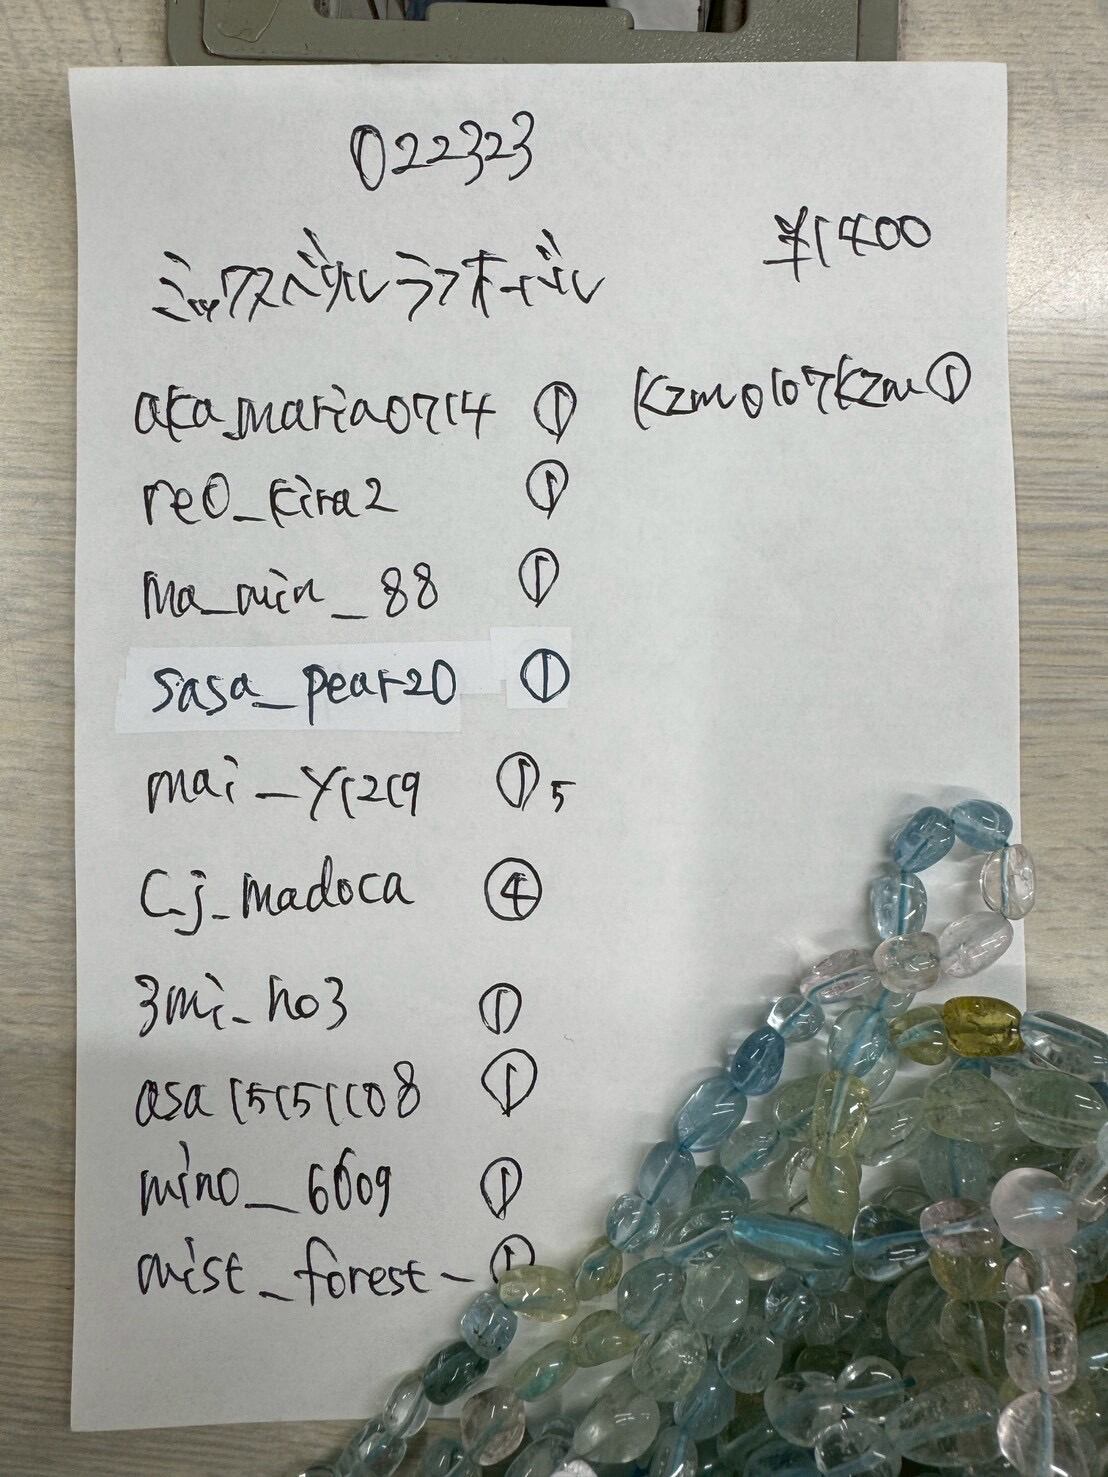 022323
¥1400
ミックスベリルラフオーバル
aka_maria0714 ①
kzm0107kzm ①
re0_kira2 ①
ma_min_88 ①
sasa_pear20 ①
mai_y1219 ① 5
c.j_madoca ④
3mi_ho3 ①
asa15151108 ①
mino_6609 ①
mist_forest_ ①